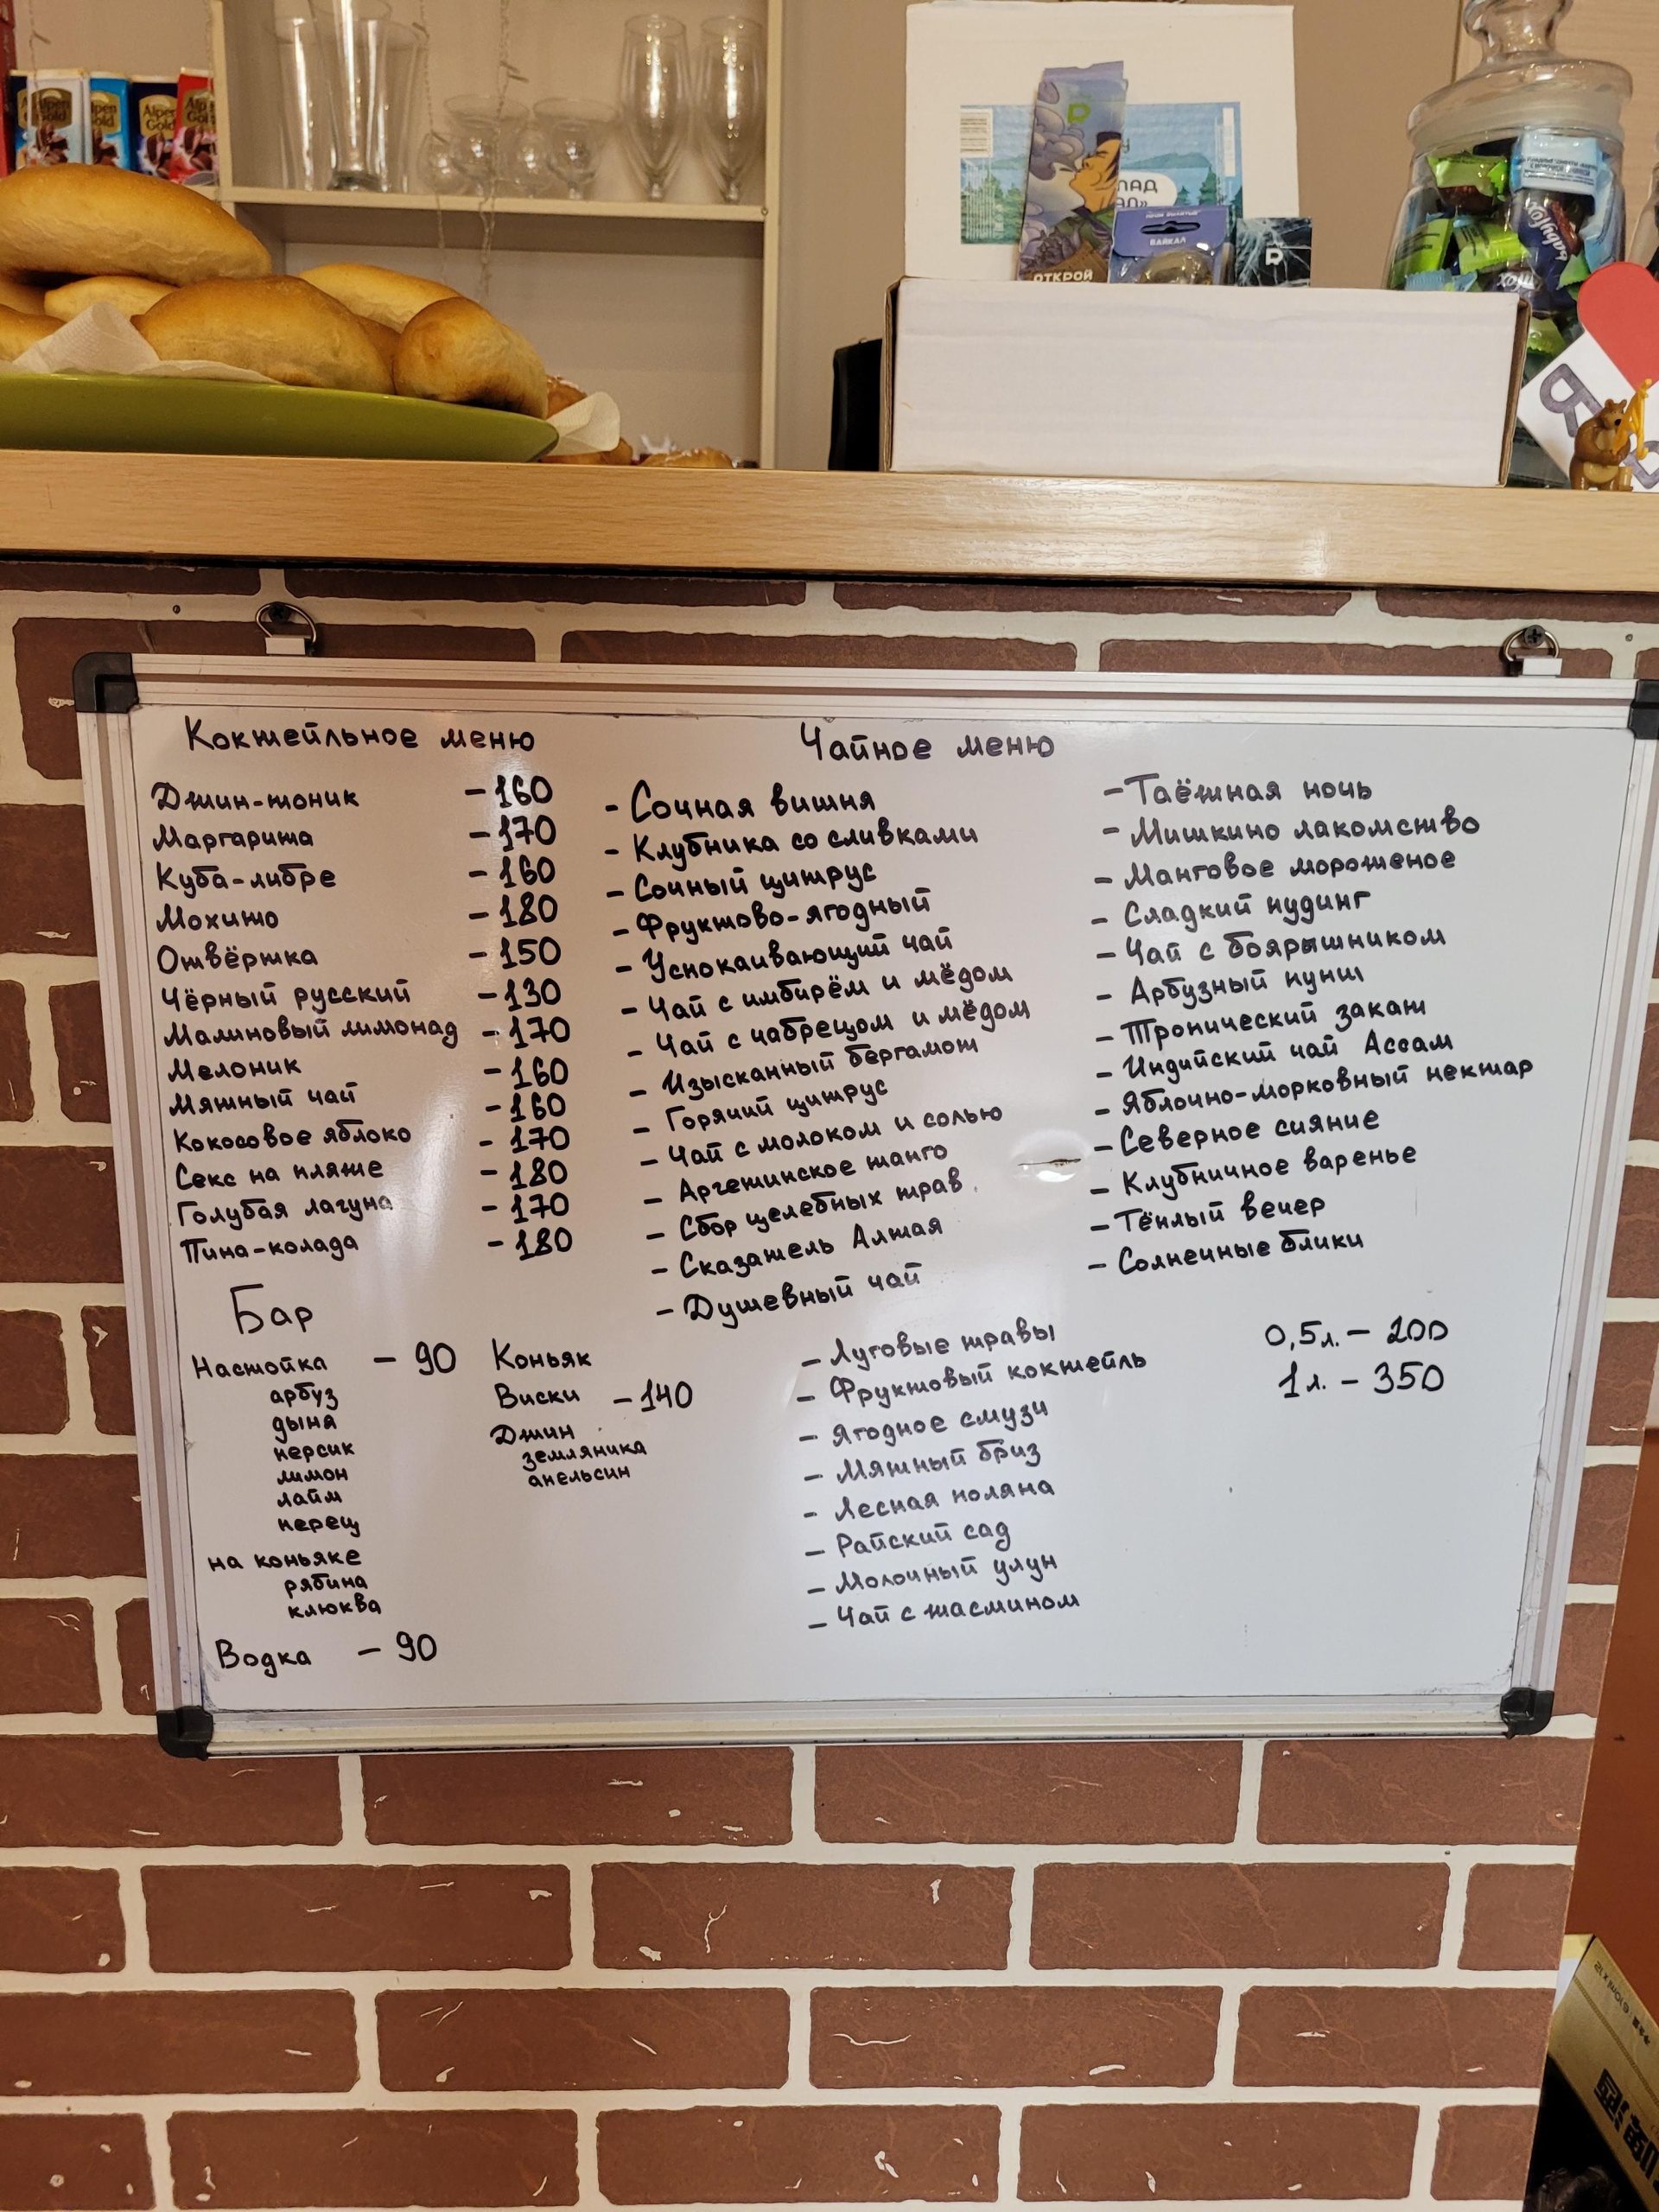 Alpen Gold
Alpen Gold
Alpen Gold
Alpen Gold
ОТКРОЙ
БАЙКАЛ
Я
Коктейльное меню
Джин-тоник - 160
Маргарита - 170
Куба-либре - 160
Мохито - 180
Отвёртка - 150
Чёрный русский - 130
Малиновый лимонад - 170
Мелоник - 160
Мятный чай - 160
Кокосовое яблоко - 170
Секс на пляже - 180
Голубая лагуна - 170
Пина-колада - 180
Бар
Настойка - 90
арбуз
дыня
персик
лимон
лайм
перец
на коньяке
рябина
клюква
Водка - 90
Коньяк
Виски - 140
Джин
земляника
апельсин
Чайное меню
- Сочная вишня
- Клубника со сливками
- Сочный цитрус
- Фруктово-ягодный
- Успокаивающий чай
- Чай с имбирём и мёдом
- Чай с чабрецом и мёдом
- Изысканный бергамот
- Горячий цитрус
- Чай с молоком и солью
- Аргентинское танго
- Сбор целебных трав
- Сказатель Алтая
- Душевный чай
- Луговые травы
- Фруктовый коктейль
- Ягодное смузи
- Мятный бриз
- Лесная поляна
- Райский сад
- Молочный улун
- Чай с жасмином
- Таёжная ночь
- Мишкино лакомство
- Манговое мороженое
- Сладкий пудинг
- Чай с боярышником
- Арбузный пунш
- Тропический закат
- Индийский чай Ассам
- Яблочно-морковный нектар
- Северное сияние
- Клубничное варенье
- Тёплый вечер
- Солнечные блики
0,5л. - 200
1 л. - 350